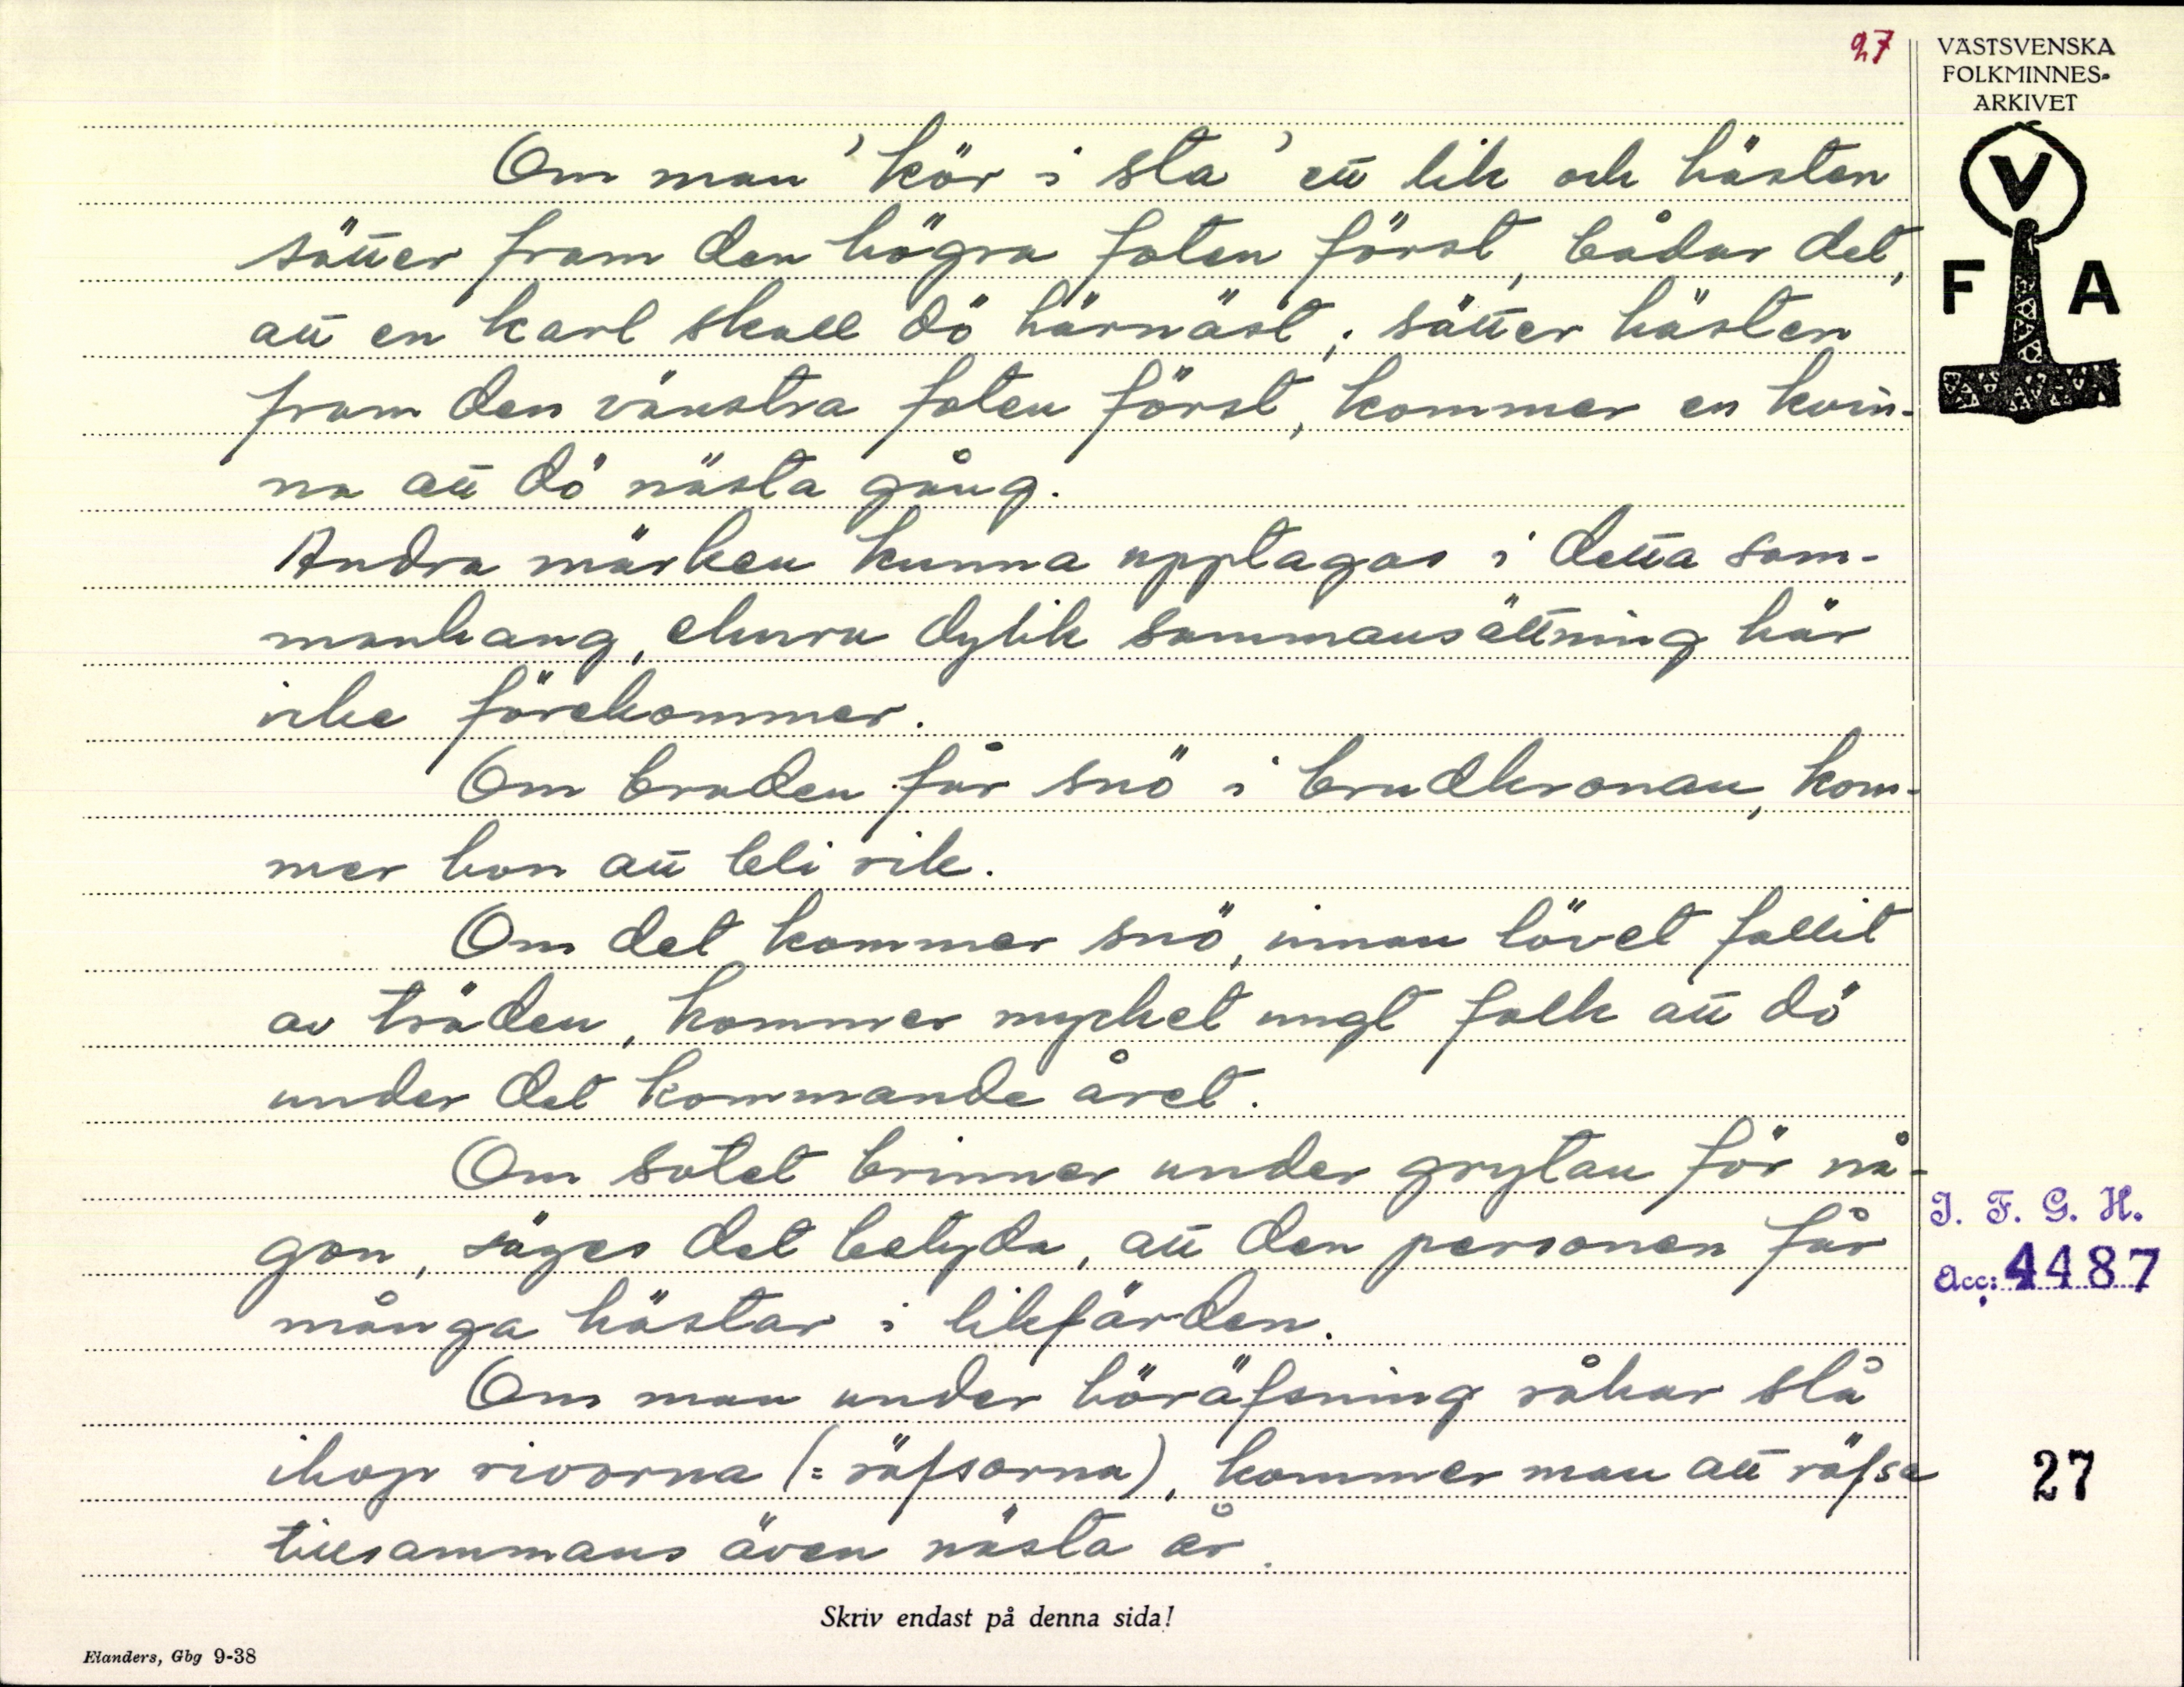 27
VÄSTSVENSKA
FOLKMINNES-
ARKIVET
V
F A
Om man 'kör i sta' ett lik och hästen
sätter fram den högra foten först, bådar det,
att en karl skall dö härnäst; sätter hästen
fram den vänstra foten först, kommer en kvin-
na att dö nästa gång.
Andra märken kunna upptagas i detta sam-
manhang, ehuru dylik sammansättning här
icke förekommer.
Om bruden får snö i brudkronan, kom-
mer hon att bli rik.
Om det kommer snö, innan lövet fallit
av träden, kommer mycket ungt folk att dö
under det kommande året.
Om sotet brinner under grytan för nå-
gon, säges det betyda, att den personen får
många hästar i likfärden.
Om man under höräfsning råkar slå
ihop rivorna (= räfsorna), kommer man att räfsa
tillsammans även nästa år.
I. F. G. H.
Acc: 4487
27
Skriv endast på denna sida!
Elanders, Gbg 9-38